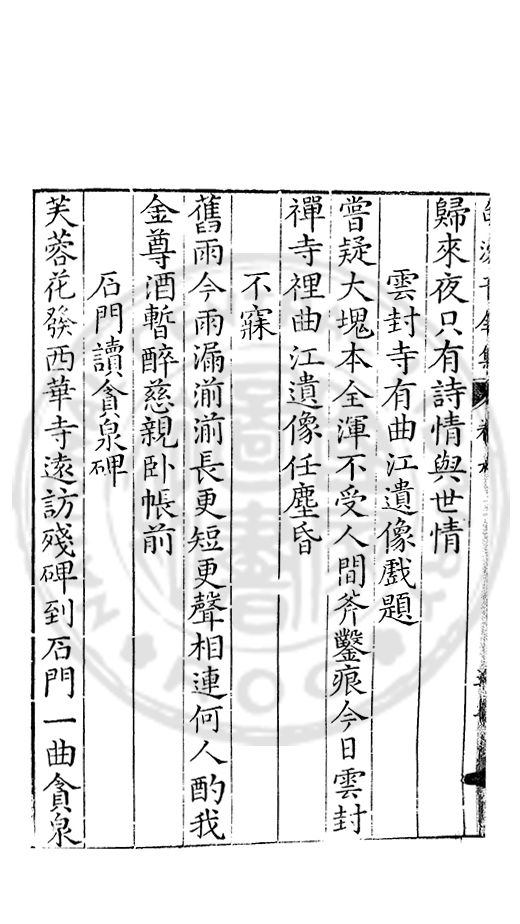 歸來夜只有詩情與世情
雲封寺有曲江遺像戲題
嘗疑大塊本全渾不受人間斧鑿痕今日雲封
禪寺裡曲江遺像任塵昏
不寐
舊雨今雨漏湔湔長更短更聲相連何人酌我
金尊酒暫醉慈親卧帳前
石門讀貪泉碑
芙蓉花發西華寺遠訪殘碑到石門一曲貪泉